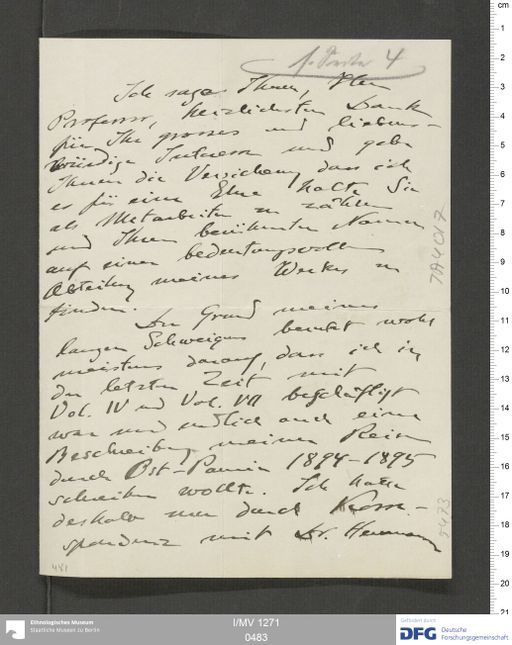 4
Ich sage Ihnen, Herr
Professor, herzlichsten Dank
für Ihr grosses und liebens-
würdige Interesse und gebe
Ihnen die Versicherung dass ich
es für eine Ehre halte Sie
als Mitarbeiter zu zählen
und Ihren berühmten Namen
auf einer bedeutungsvollen
Abteilung meines Werkes zu
finden.
Der Grund meines
langen Schweigens beruht wohl
meistens darauf, dass ich in
der letzten Zeit mit
Vol. IV und Vol. VII beschäftigt
war und endlich auch eine
Beschreibung meiner Reise
durch Ost-Pamir 1894-1895
schreiben wollte. Ich hatte
deshalb nur durch Korre-
spondenz mit Dr. Hermann
481
5473
cm
1
2
3
4
5
6
7
8
9
10
11
12
13
14
15
16
17
18
19
20
21
Ethnologisches Museum
Staatliche Museen zu Berlin
I/MV 1271
0483
Gefördert durch
DFG Deutsche
Forschungsgemeinschaft